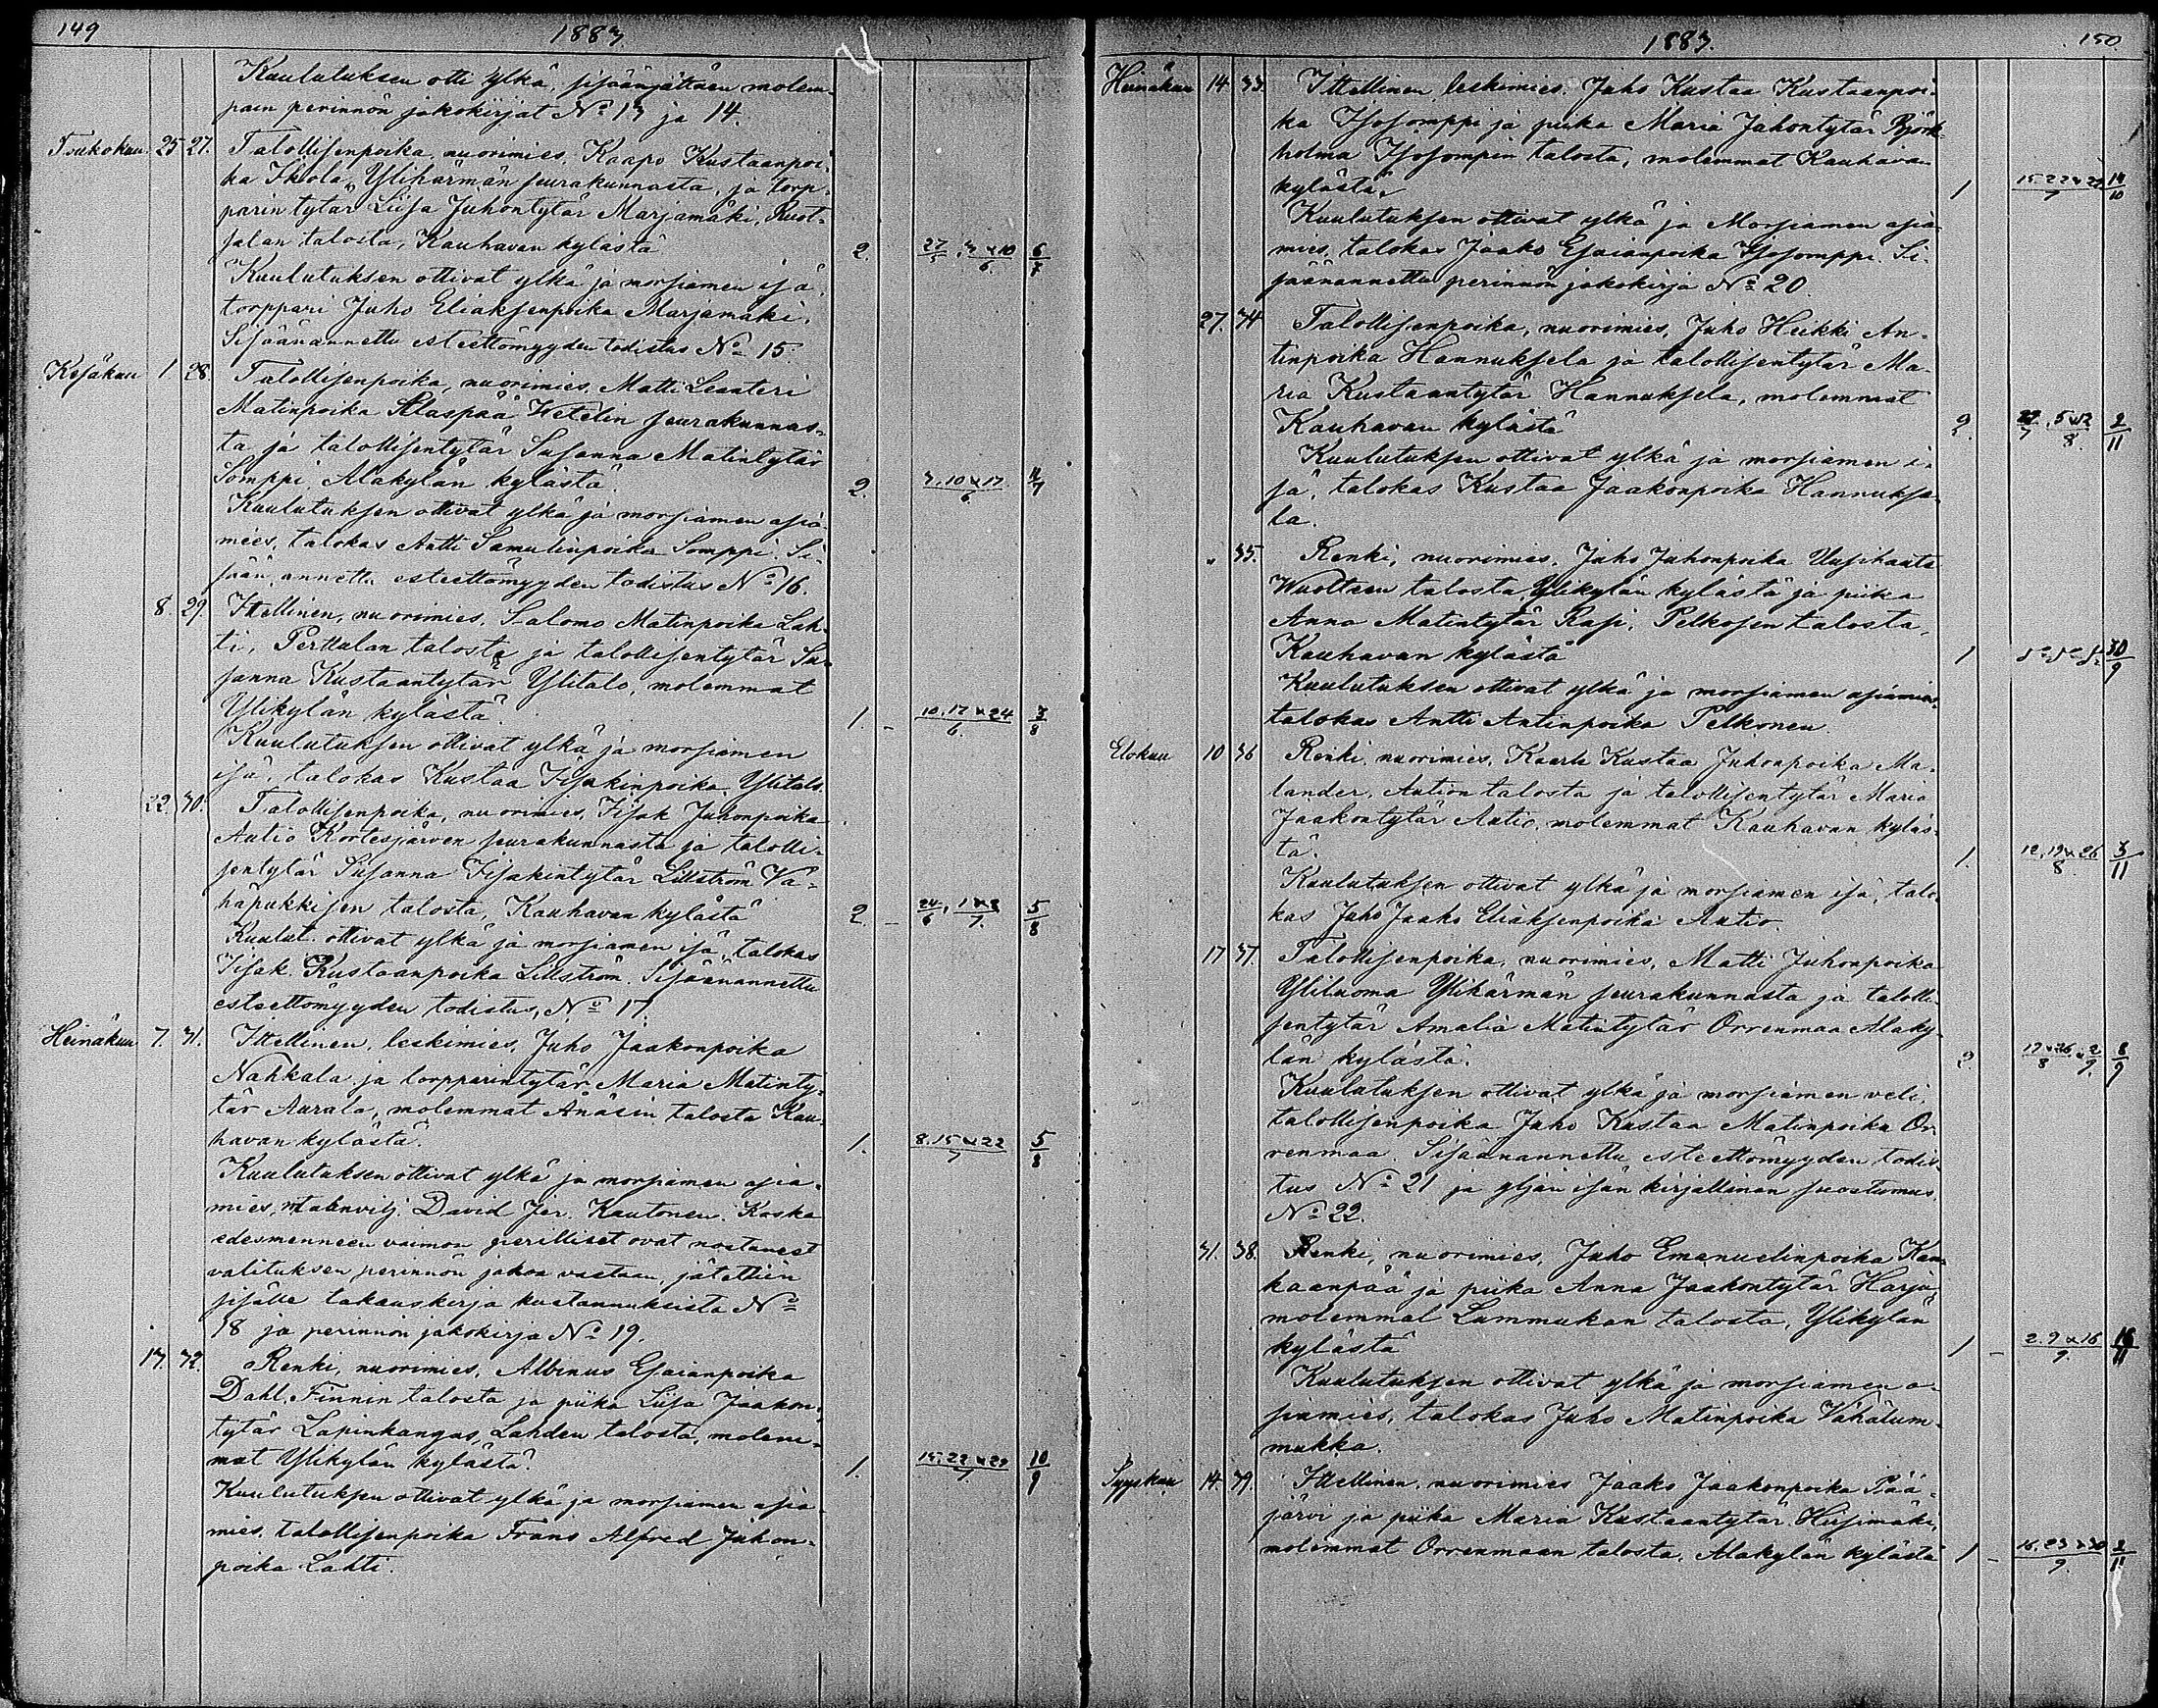 149
1883.
Kuulutuksen otti ylkä, sisäänjättäen molem-
pain perinnön jakokirjat No 13 ja 14.
Toukokuu 25 27. Talollisenpoika, nuorimies, Kaapo Kustaanpoi-
ka Ikola, Ylihärmän seurakunnasta, ja torp-
parin tytär Liisa Juhontytär Marjamäki, Rust-
jalan talosta, Kauhavan kylästä 2. 27/5, 3 & 10/6 6/7
Kuulutuksen ottivat ylkä ja morsiamen isä,
torppari Juho Eliaksenpoika Marjamäki.
Sisäänannettu esteettömyyden todistus No 15.
Kesäkuu 1. 28. Talollisenpoika, nuorimies, Matti Leanteri
Matinpoika Alaspää Wetelin seurakunnas-
ta ja talollisentytär Susanna Matintytär
Somppi, Alakylän kylästä. 2. 3, 10 & 17/6
Kuulutuksen ottivat ylkä ja morsiamen asia-
mies, talokas Antti Samulinpoika Somppi. Si-
sään annettu esteettömyyden todistus No 16.
8. 29. Itellinen, nuorimies, Salomo Matinpoika Lah-
ti, Perttulan talosta ja talollisentytär Su-
sanna Kustaantytär Ylitalo, molemmat
Ylikylän kylästä. 1. – 10, 17 & 24/6. 3/8
Kuulutuksen ottivat ylkä ja morsiamen
isä, talokas Kustaa Iisakinpoika Ylitalo.
22. 30. Talollisenpoika, nuorimies, Iisak Juhonpoika
Autio Kortesjärven seurakunnasta ja talolli-
sentytär Susanna Iisakintytär Lillström Vä-
häpukkisen talosta, Kauhavan kylästä 2. – 24/6, 1 & 8/7. 5/8
Kuulut. ottivat ylkä ja morsiamen isä, talokas
Iisak Kustaanpoika Lillström. Sisäänannettu
esteettömyyden todistus, No 17.
Heinäkuu 7. 31. Itellinen, leskimies, Juho Jaakonpoika
Nahkala ja torpparintytär Maria Matinty-
tär Aurala, molemmat Änäsin talosta Kau-
havan kylästä. 1. 8, 15 & 22/7 5/8
Kuulutuksen ottivat ylkä ja morsiamen asia-
mies, David Jer. Kautonen. Koska
edesmenneen vaimon perilliset ovat nostaneet
valituksen perinnön jakoa vastaan, jätettiin
sisälle takauskirja kustannuksista No
18 ja perinnön jakokirja No 19.
13. 32. Renki, nuorimies, Albinus Esaianpoika
Dahl, Finnin talosta ja piika Liisa Jaakon-
tytär Lapinkangas, Lahden talosta, molem-
mat Ylikylän kylästä. 1. 15, 22 & 29/7 10/9
Kuulutuksen ottivat ylkä ja morsiamen asia-
mies, talollisenpoika Frans Alfred Juhon-
poika Lahti.
1883.
150.
Heinäkuu 14 33. Ittellinen, leskimies, Juho Kustaa Kustaanpoi-
ka Isosomppi ja piika Maria Juhontytär Björk-
holma Isosompin talosta, molemmat Kauhavan
kylästä. 1 15, 22 & 29/7 14/10
Kuulutuksen ottivat ylkä ja Morsiamen asia-
mies, talokas Jaako Esaianpoika Isosomppi. Si-
säänannettu perinnön jakokirja No 20
27. 34 Talollisenpoika, nuorimies, Juho Heikki An-
tinpoika Hannuksela ja talollisentytär Ma-
ria Kustaantytär Hannuksela, molemmat
Kauhavan kylästä 2. 5 & 12/8. 2/11
Kuulutuksen ottivat ylkä ja morsiamen i-
sä, talokas Kustaa Jaakonpoika Hannukse-
la.
„ 35. Renki, nuorimies, Juho Juhonpoika Uusihaata
Wuolteen talosta Ylikylän kylästä ja piika
Anna Matintytär Rasi, Pelkosen talosta,
Kauhavan kylästä 1 30/9
Kuulutuksen ottivat ylkä ja morsiamen asiamies,
talokas Antti Antinpoika Pelkonen.
Elokuu 10 36 Renki, nuorimies, Kaarle Kustaa Juhonpoika Ma-
lander, Aution talosta ja talollisentytär Maria
Jaakontytär Autio, molemmat Kauhavan kyläs-
tä. 1. 12, 19 & 26/8. 3/11
Kuulutuksen ottivat ylkä ja morsiamen isä, talo-
kas Juho Jaako Eliaksenpoika Autio.
17 37. Talollisenpoika, nuorimies, Matti Juhonpoika
Yliluoma Ylihärmän seurakunnasta ja talolli-
sentytär Amalia Matintytär Orrenmaa Alaky-
län kylästä. 2. 19 & 26/8 & 2/9. 8/9
Kuulutuksen ottivat ylkä ja morsiamen veli,
talollisenpoika Juho Kustaa Matinpoika Or-
renmaa. Sisäänannettu esteettömyyden todis-
tus No 21 ja yljän isän kirjallinen suostumus
No 22.
31. 38. Renki, nuorimies, Juho Emanuelinpoika Kan-
kaanpää ja piika Anna Jaakontytär Harju,
molemmat Lummukan talosta, Ylikylän
kylästä 1 – 2. 9 & 16/9.
Kuulutuksen ottivat ylkä ja morsiamen a-
siamies, talokas Juho Matinpoika Vähälum-
mukka.
Syyskuu 14. 39. Ittellinen, nuorimies Jaako Jaakonpoika Pää-
järvi ja piika Maria Kustaantytär Hirsimäki,
molemmat Orrenmaan talosta, Alakylän kylästä 1 – 16, 23 & 30/9. 2/11